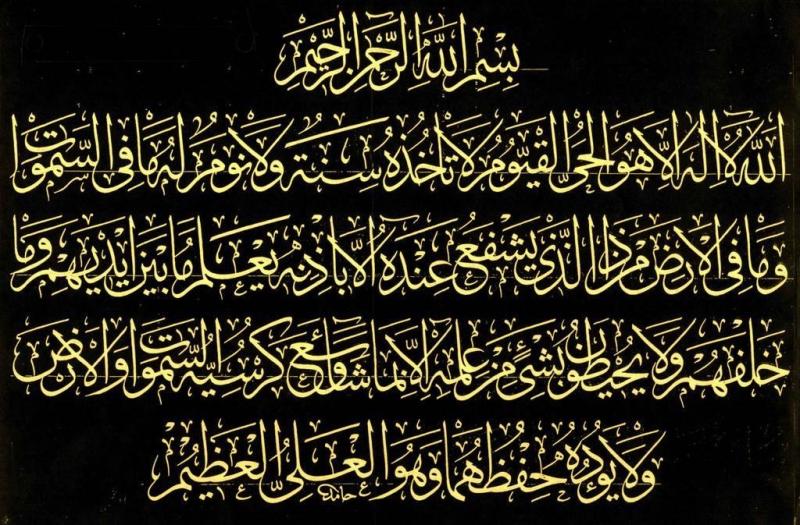 بسم الله الرحمن الرحيم
الله لا اله الا هو الحي القيوم لا تأخذه سنة ولا نوم له ما في السموات
وما في الارض من ذا الذي يشفع عنده الا باذنه يعلم ما بين ايديهم وما
خلفهم ولا يحيطون بشئ من علمه الا بما شاء وسع كرسيه السموات والارض
ولا يؤده حفظهما وهو العلي العظيم
حامد